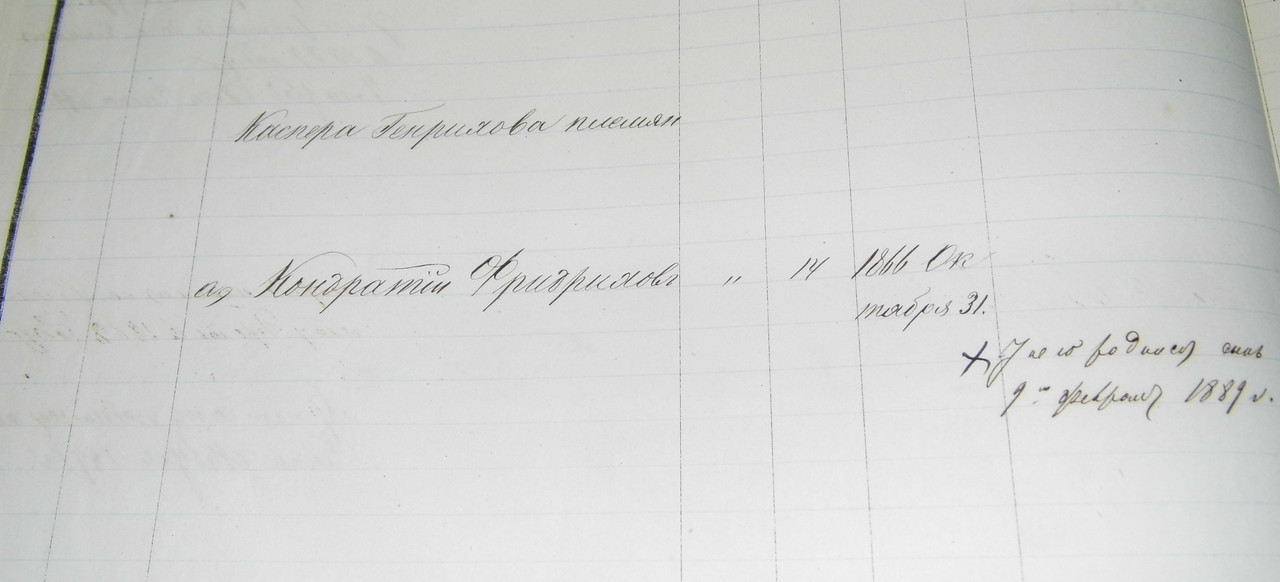 Каспера Генрихова племян
а, Кондратій Фридриховъ " 14 1866 Ок
тября 31.
У него родился сынъ
9го февраля 1889 г.